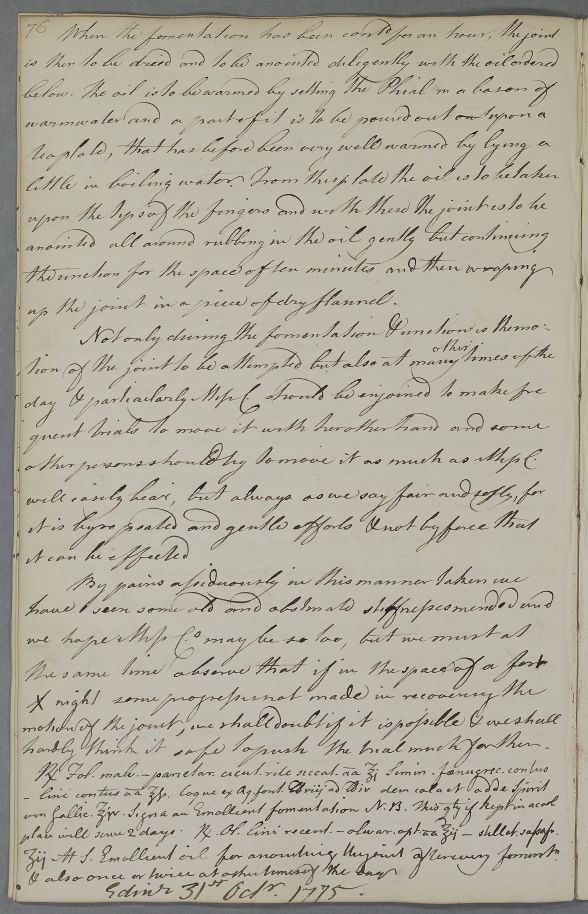 76 When the fomentation has been contd for an hour, the joint
is then to be dried and to be anointed diligently with the oil ordered
below. the oil is to be warmed by setting the Phial in a bason of
warm water and a part of it is to be pourd out upon a
tea plate, that has before been very well warmed by lying a
little in boiling water. From this plate the oil is to be taken
upon the tips of the fingers and with these the joint is to be
anointed all around rubbing in the oil gently but continuing
the unction for the space of ten minutes and then wraping
up the joint in a piece of dry flannel.
Not only during the fomentation & unction is the mo-
tion of the joint to be attempted but also at many other times of the
day & particularly Miss C. should be enjoined to make fre
quent trials to move it with her other hand and some
other persons should try to move it as much as Miss C.
will easily bear, but always as we say fair and softly, for
it is by repeated and gentle efforts & not by force that
it can be effected
By pains assiduously in this manner taken we
have seen some old and obstinate stiffnesses mended and
we hope Miss C.s may be so too, but we must at
the same time observe that if in the space of a fort
X night some progress is not made in recovering the
motion of the joint, we shall doubt if it is possible & we shall
hardly think it safe to push the trial much farther.
℞ Fol. malv. - parietar. cicut. rite siccat. aa ʒi Semin. fænugrec. contus
- lini contus aa ʒss. Coque ex Aq font ad dein colat adde Spirit
vin Gallic. ʒiv. Signa an Emollient fomentation N.B. This qty if kept in a cool
place will serve 2 days. ℞ Ol. lini recent - olivar. opt aa ʒij - stillat. sapaf.
ʒij M S. Emollient oil for anointing the joint after every fomentn
& also once or twice at other times of the day
Edinr 31st Octr. 1775.